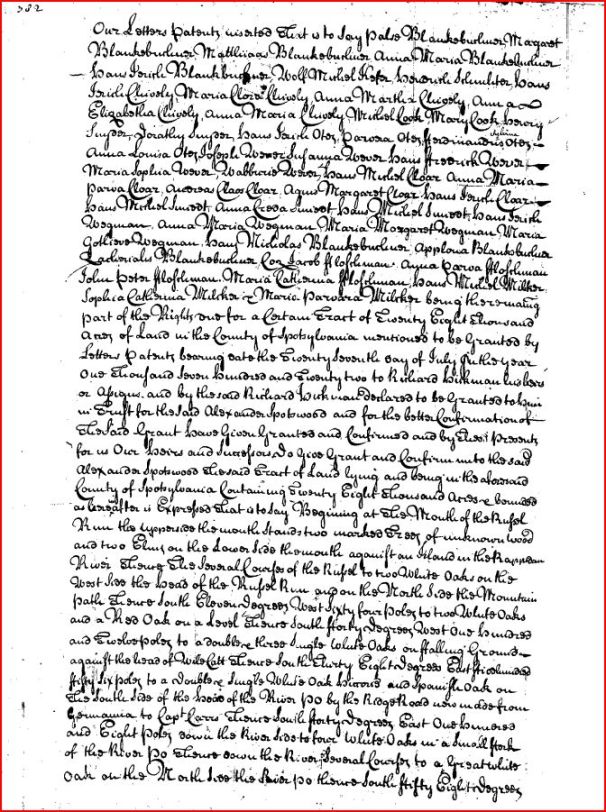 382
Our Letters Patents inserted That is to Say Palse Blankebuchner, Margaret
Blankebuchner Matthiaas Blankebuchner Anna Maria Blankebuchner
Hans Jerich Blankbuchner, Wolf Michel Kefer Henerich Schuchter, Hans
Jerich Chively, Maria Clora Chively, Anna Martha Chively, Anna
Elizabetha Chively, Anna Maria Chively, Michel Cook Mary Cook Henry
Snyder, Dorathy Snyder, Hans Jerich Otes, Parvora Otes, Ferdinandis Otes
Anna Louisa Otes Joseph Wever Susanna Wever Hans Frederick Wever
Maria Sophia Wever Wabburie Wever, Hans Michel Cloar Anna Maria
Parva Cloar, Andreas Claos Cloar, Agnis Margaret Cloar Hans Jerich Cloar
Hans Michel Smiedt, Anna Creda Smiedt, Hans Michel Smiedt, Hans Jerich
Wegman, Anna Maria Wegman Maria Margaret Wegman Maria
Gotlieve Wegman, Hans Nicholas Blankebuchner, Applona Blankebuchner
Zacharias Blankebuchner, Coz Jacob Floschman, Anna Parva Floschman
John Peter Floschman, Maria Catherina Floschman, Hans Michel Milker
Sophia Catherina Milcker & Maria Parvara Milcker being the remaing
part of the Rights due for a Certain Tract of Twenty Eight Thousand
Acres of Land in the County of Spotsylvania mentioned to be Granted by
Letters Patents bearing date the Twenty Seventh day of July in the year
One Thousand Seven Hundred and Twenty two to Richard Hickman his heirs
or Assigns, and by the said Richard Hickman declared to be Granted to him
in Trust for the Said Alexander Spotswood and for the better Confirmation of
The Said Grant Have Given Granted and Confirmed and by These presents
for us Our Heirs and Successors Do Give Grant and Confirm unto the said
Alexander Spotswood The said Tract of Land lying and being in the aforesaid
County of Spotsylvania Containing Twenty Eight Thousand Acres & bounded
as hereafter is Expressed That is to Say Beginning at The Mouth of the Russel
Run the upperside the mouth Stands two marked Trees of unknown wood
and two Elms on the Lower Side the mouth against an Island in the Rappidan
River Thence The Several Courses of the Russel to two White Oaks on the
West Side the Head of the Russel Run and on the North Side the Mountain
path Thence South Eleven degrees, West Sixty four Poles to two White Oaks
and a Red Oak on a Level Thence South fforty degrees, West One Hundred
and Twelve poles, to a double & three Single White Oaks on ffalling Ground
against the head of Wile Catt Thence South Thirty Eight degrees East five hundred
ffifty Six poles to a double & Single White Oak Hiccory and Spanish Oak on
The South Side of the Head of the River Po by the Ridge Road now made from
Germanna to Capt Carrs Thence South fforty degrees, East One Hundred
and Eight Poles, down the River Side to four White Oaks in a Small fork
of the River Po Thence down the River Several Courses to a Great white
Oak on the North Side the River po thence South ffifty Eight degrees